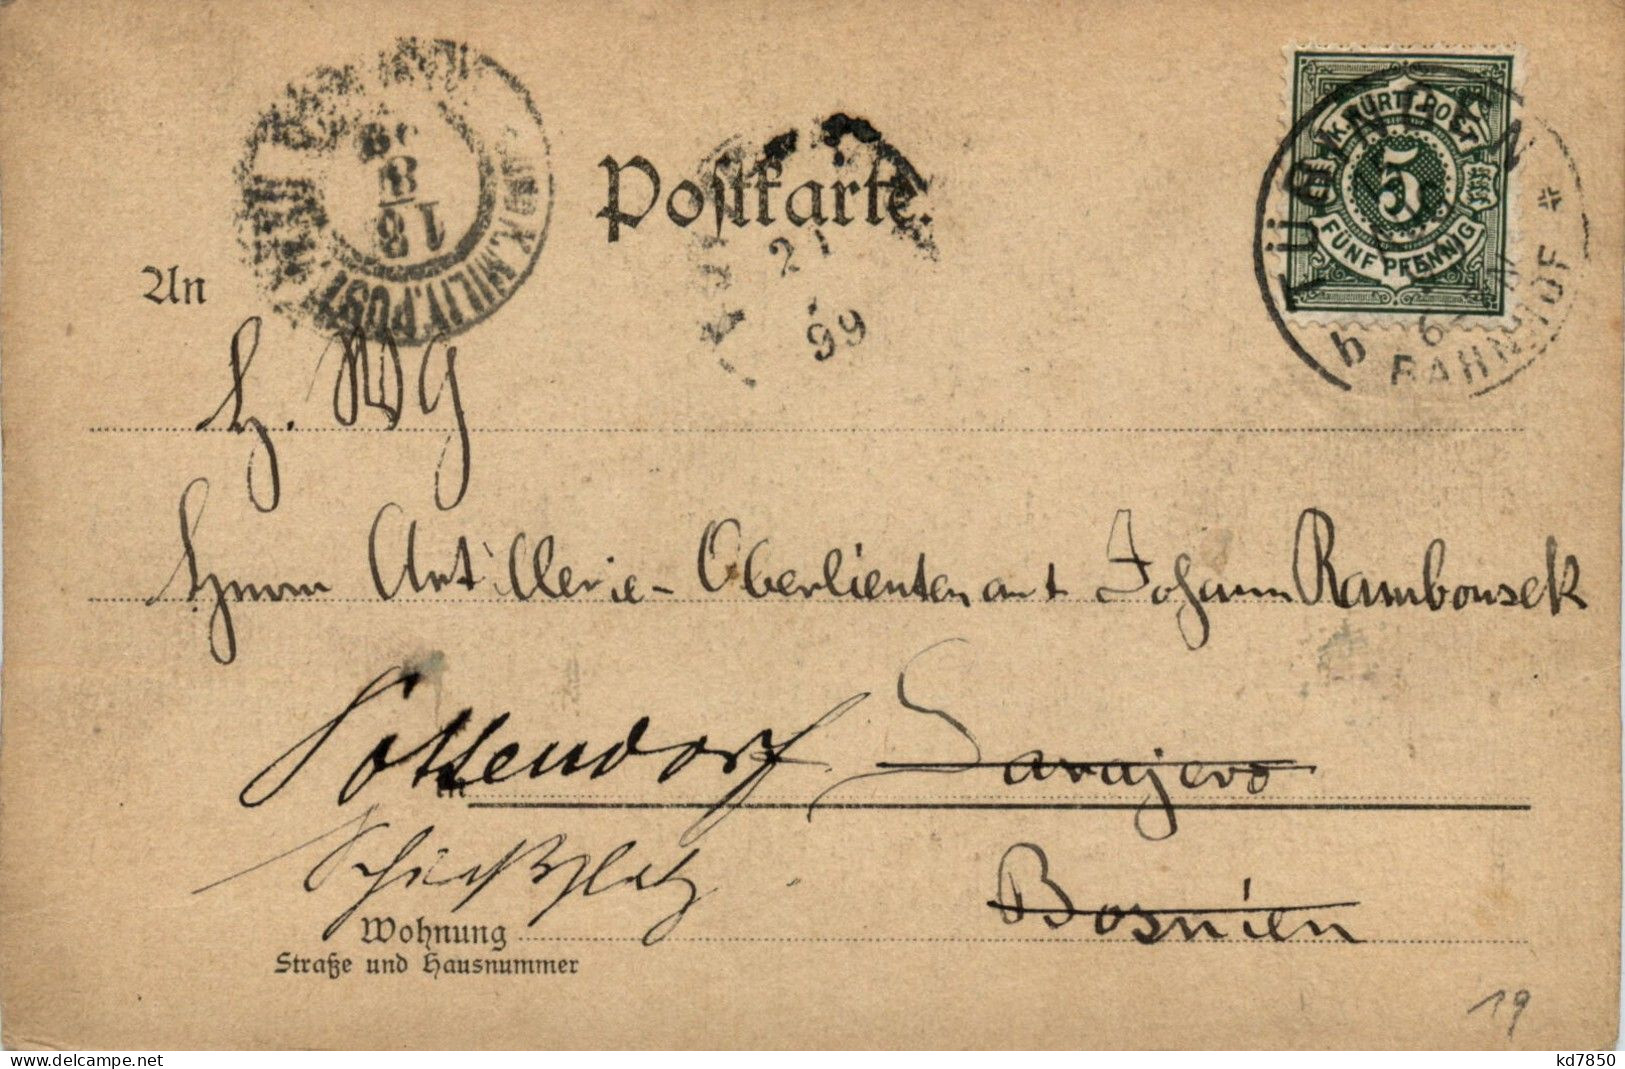 Postkarte.
K. WÜRTT. POST
5
FÜNF PFENNIG
TÜBINGEN
BAHNHOF
b
K.U.K. MILIT. POST
18
8
99
21
99
An
H. Wg
Herrn Artillerie-Oberlieutenant Johann Rambousek
Sottendorf Sarajevo
in
Schießplatz
Bosnien
Wohnung
Straße und Hausnummer
19
delcampe.net
kd7850